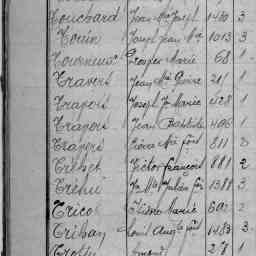 Touchard Jean Mie Joseph 1430 3
Touin Joseph Jean Mie 1013 3
Tourneux Prosper Marie 68 1
Travers Jean Mie Pierre 21 1
Travers Joseph Jn Marie 428 1
Travers Jean Baptiste 406 1
Travers Pierre Mie fois 811 2
Tréhet Victor françois 881 2
Tréhu Jn Mie Julien fois 1388 3
Tricot Isidore Marie 602 2
Trihan Louis Aug. fois 1483 3
Armand 27 1